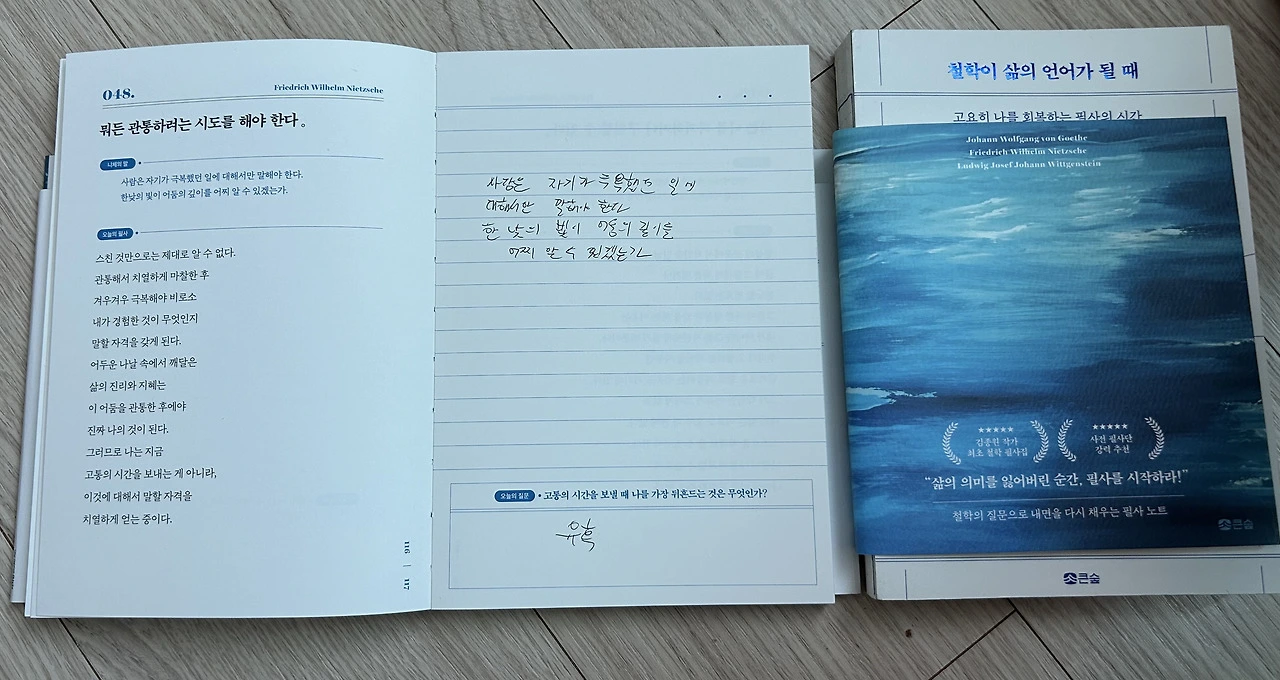 048.
Friedrich Wilhelm Nietzsche
뭐든 관통하려는 시도를 해야 한다.
니체의 말
사람은 자기가 극복했던 일에 대해서만 말해야 한다.
한낮의 빛이 어둠의 깊이를 어찌 알 수 있겠는가.
오늘의 필사
스친 것만으로는 제대로 알 수 없다.
관통해서 치열하게 마찰한 후
겨우겨우 극복해야 비로소
내가 경험한 것이 무엇인지
말할 자격을 갖게 된다.
어두운 나날 속에서 깨달은
삶의 진리와 지혜는
이 어둠을 관통한 후에야
진짜 나의 것이 된다.
그러므로 나는 지금
고통의 시간을 보내는 게 아니라,
이것에 대해서 말할 자격을
치열하게 얻는 중이다.
116 | 117
사람은 자기가 극복했던 일에
대해서만 말해야 한다
한 낮의 빛이 어둠의 깊이를
어찌 알 수 있겠는가
오늘의 질문 • 고통의 시간을 보낼 때 나를 가장 뒤흔드는 것은 무엇인가?
유혹
철학이 삶의 언어가 될 때
고요히 나를 회복하는 필사의 시간
Johann Wolfgang von Goethe
Friedrich Wilhelm Nietzsche
Ludwig Josef Johann Wittgenstein
★★★★★
김종원 작가
최초 철학 필사집
★★★★★
사전 필사단
강력 추천
“삶의 의미를 잃어버린 순간, 필사를 시작하라!”
철학의 질문으로 내면을 다시 채우는 필사 노트
큰숲
큰숲